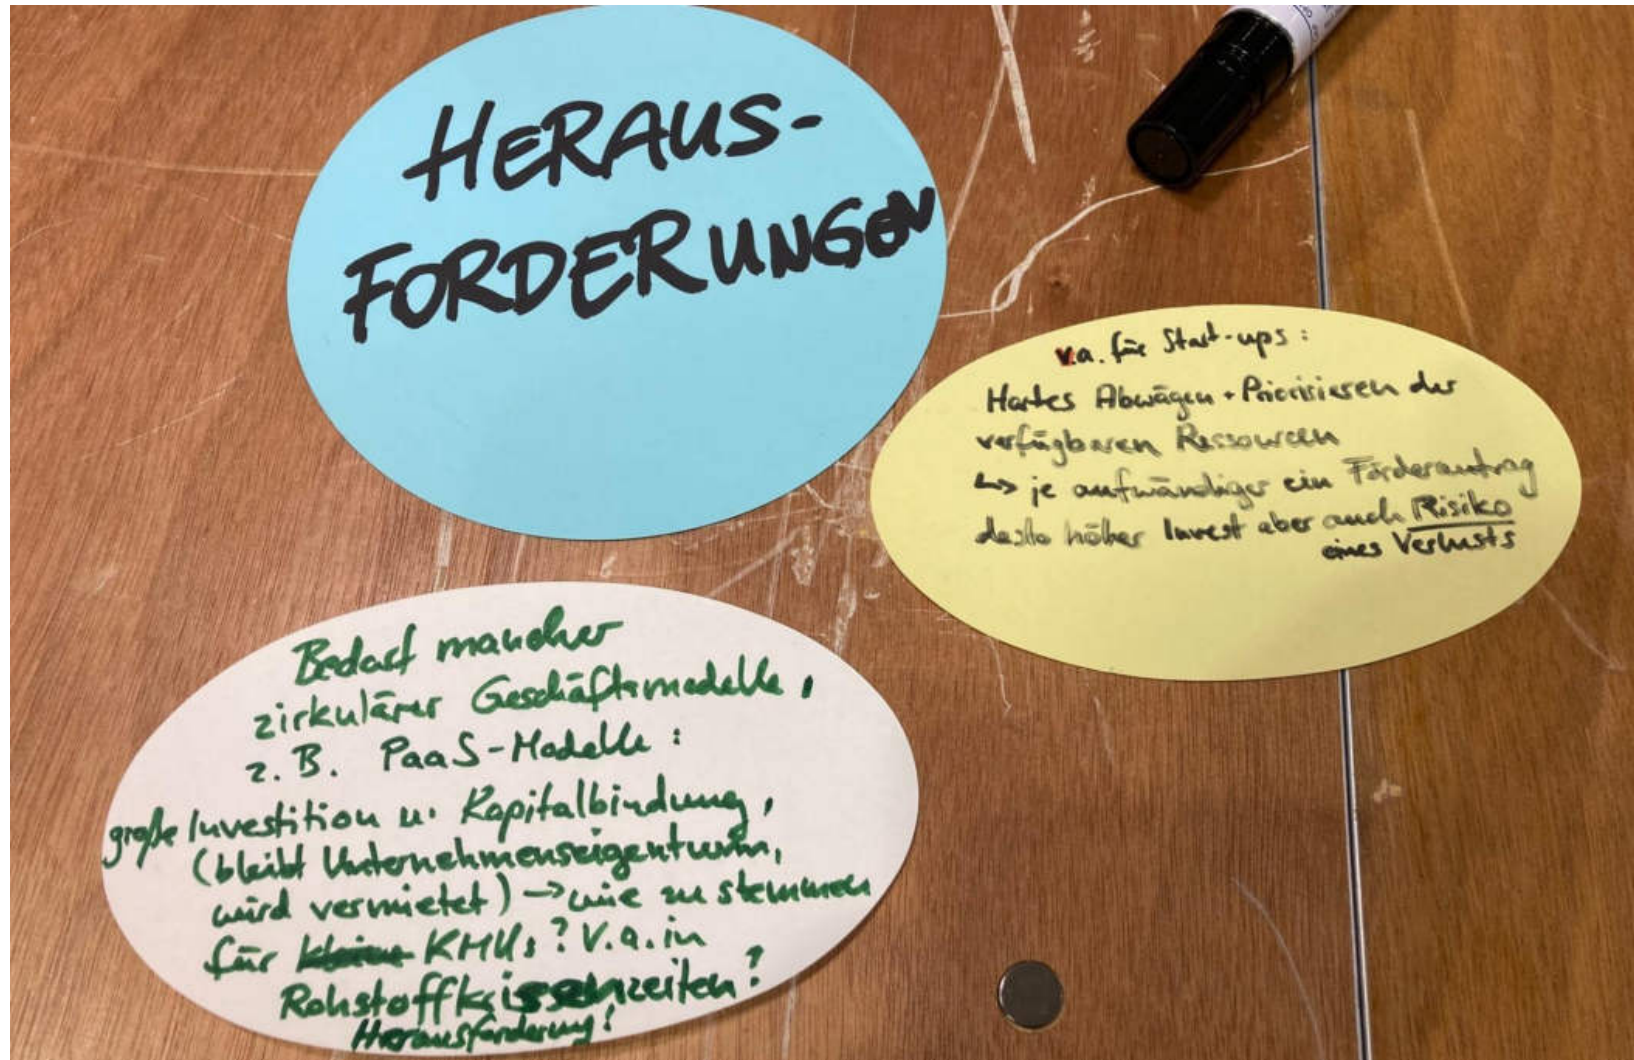 HERAUS-
FORDERUNGEN
v.a. für Start-ups:
Hartes Abwägen + Priorisieren der
verfügbaren Ressourcen
↳ je aufwändiger ein Förderantrag
desto höher Invest aber auch Risiko
eines Verlusts
Bedarf mancher
zirkulärer Geschäftsmodelle,
z.B. PaaS-Modelle:
große Investition u. Kapitalbindung,
(bleibt Unternehmenseigentum,
wird vermietet) → wie zu stemmen
für kleine KMUs? V.a. in
Rohstoffkrisenzeiten?
Herausforderung!